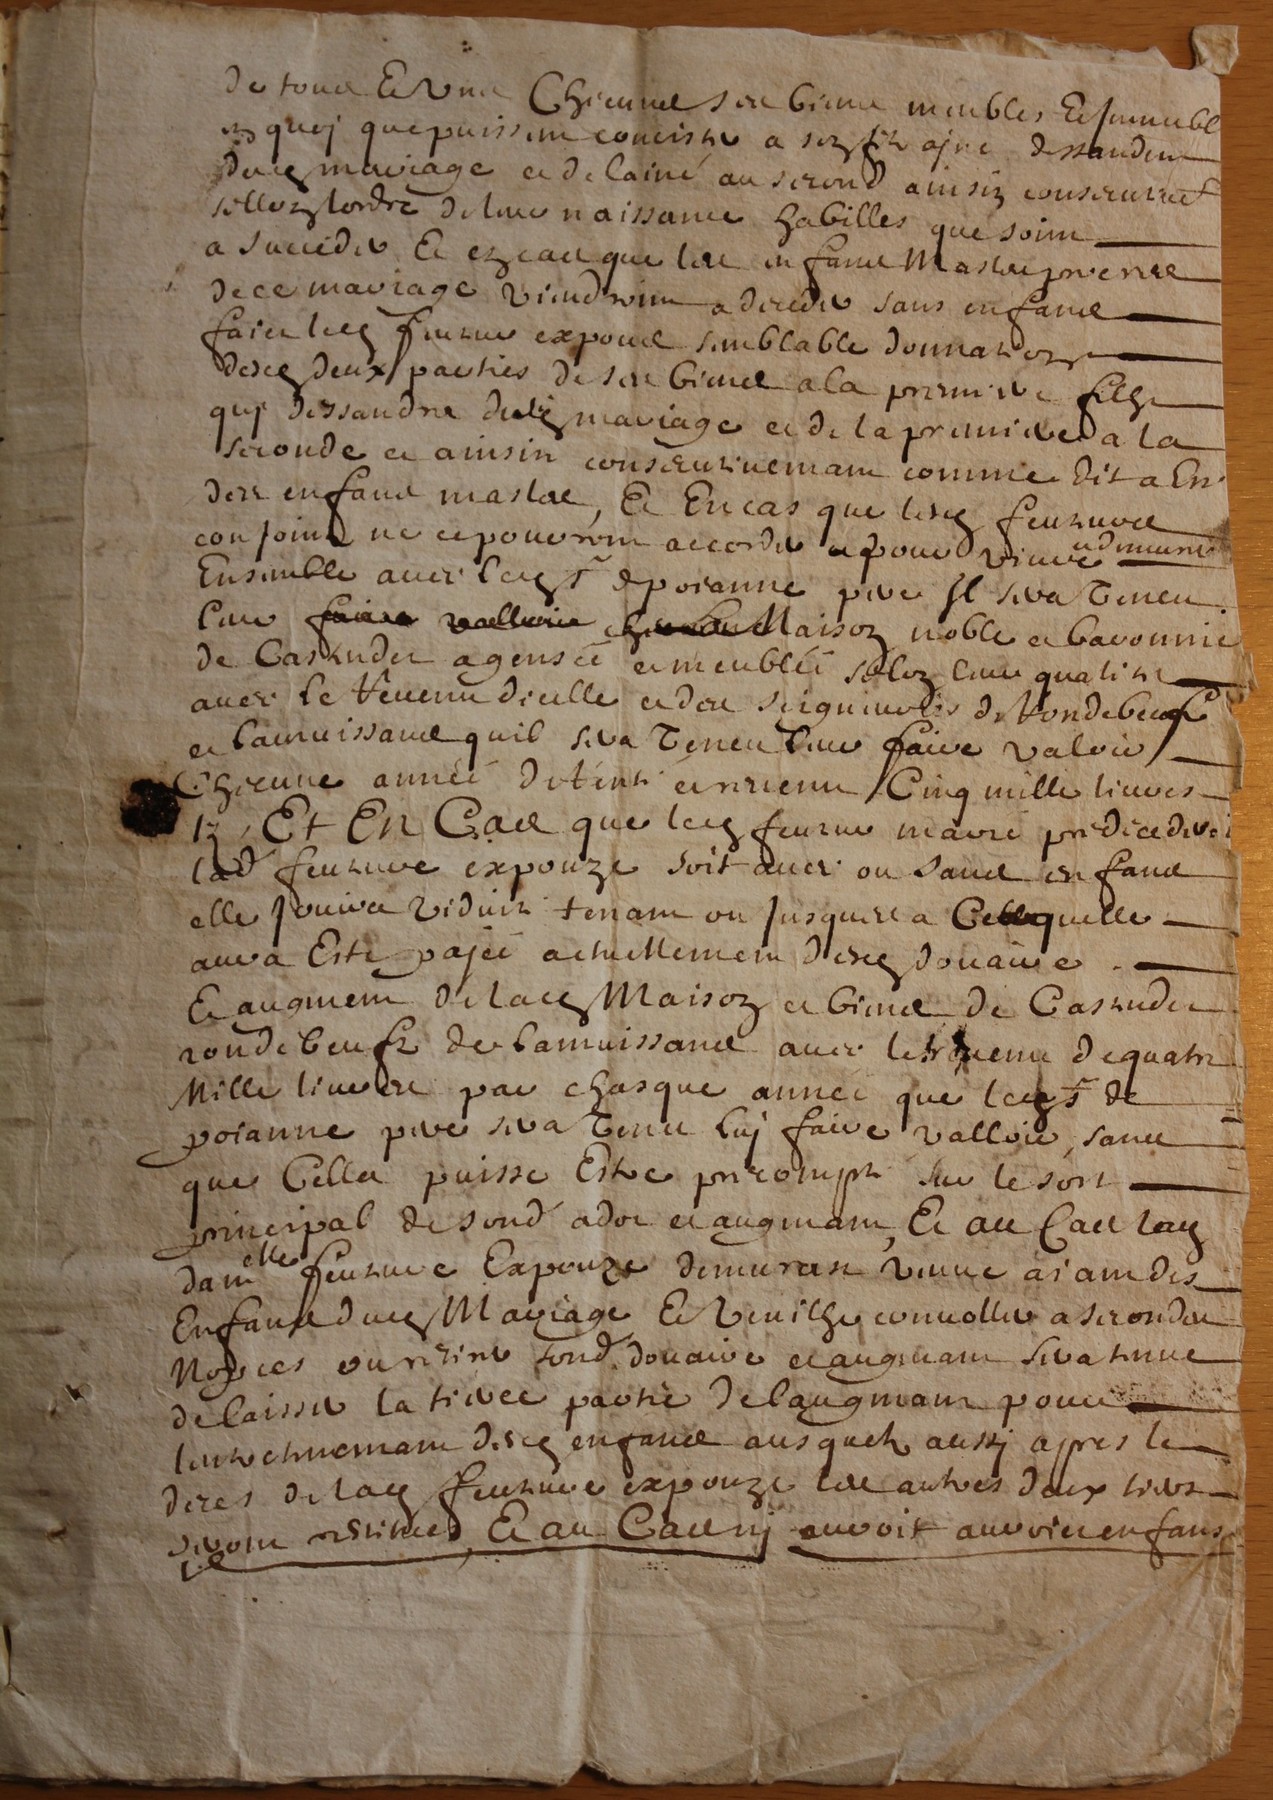 de tous Et Uns Chacuns ses biens meubles Et Jmmeubl
en quoj que puissent concister a son filz ajne dessandent
dud mariage et de laine au second ainsin consecutivet
sellon lordre de leur naissance habilles que soint
a succeder Et en cas que les enfans Masles procrees
de ce mariage viendroint a deceder sans enfans
faict led futeur expoux semblable donnation
desd deux parties de ses biens a la premiere filhe
quj dessandra dud mariage et de la premiere a la
seconde et ainsin consecutivemant comme dit a Este
des enfans masles, Et En cas que lesd feuturs
conjoints ne ce pouroint accorder et pour vivre et demurer
Ensemble avec led sr de poianne pere Jl sera Tenu
leur Maison noble et baronnie
de Castender agensee et meublee selon leur qualite
avec le Revenu dicelle et des seigneuries de Rondebeuf
et lamuissans quil sera Tenu leur faire valoir
Chacune année de rente et revenu Cinq mille livres
tz, Et En Cas que led feutur marié predecedera
lad feuture expouze soit avec ou sans enfans
elle Jouira viduite tenant ou Jusques a Ce quelle
aura Este pajée actuellement desd douaire
Et augment de lad Maison et biens de Castender
rondebeufz de lamuissans avec le revenu de quatre
Mille livres par chasque année que led sr de
poianne pere sera Tenu luj faire valloir, sans
que Cella puisse Estre precompte sur le sort
principal de sond adot et augmant, Et au Cas lad
damelle feuture Expouze demurast veuve aiant des
Enfans dud Mariage Et Veuilhe convoller a secondes
Nopces ou retire sond douaire et augmant sera tenue
de laisser la tierce partie de laugmant pour
lentretenemant desd enfans ausquels aussj apres le
deces de lad feuture expouze les autres deux tiers
seront restitues, Et au Cas nj auroit aucuns enfans